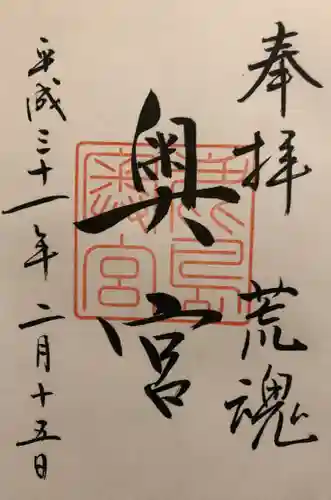 奉拝 荒魂
奥宮
平成三十一年二月十五日